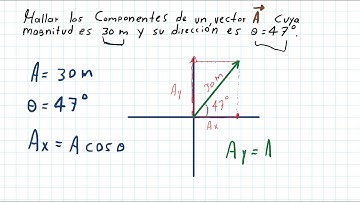 Hallar los Componentes de un vector A⃗ cuya
magnitud es 30 m y su dirección es θ = 47°.
A = 30 m
θ = 47°
Ax = A cos θ
Ay
30 m
47°
Ax
Ay = A